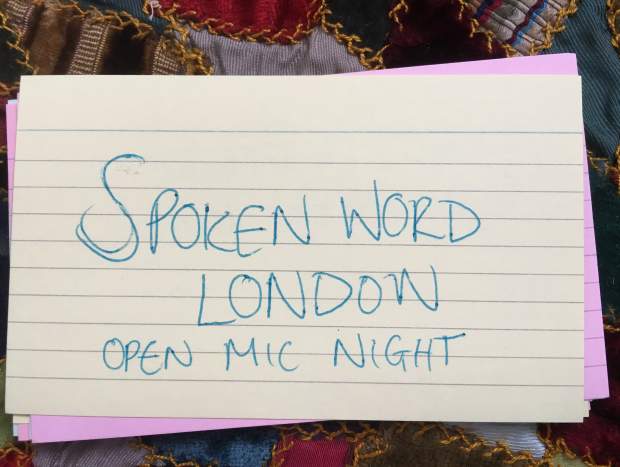 SPOKEN WORD
LONDON
OPEN MIC NIGHT